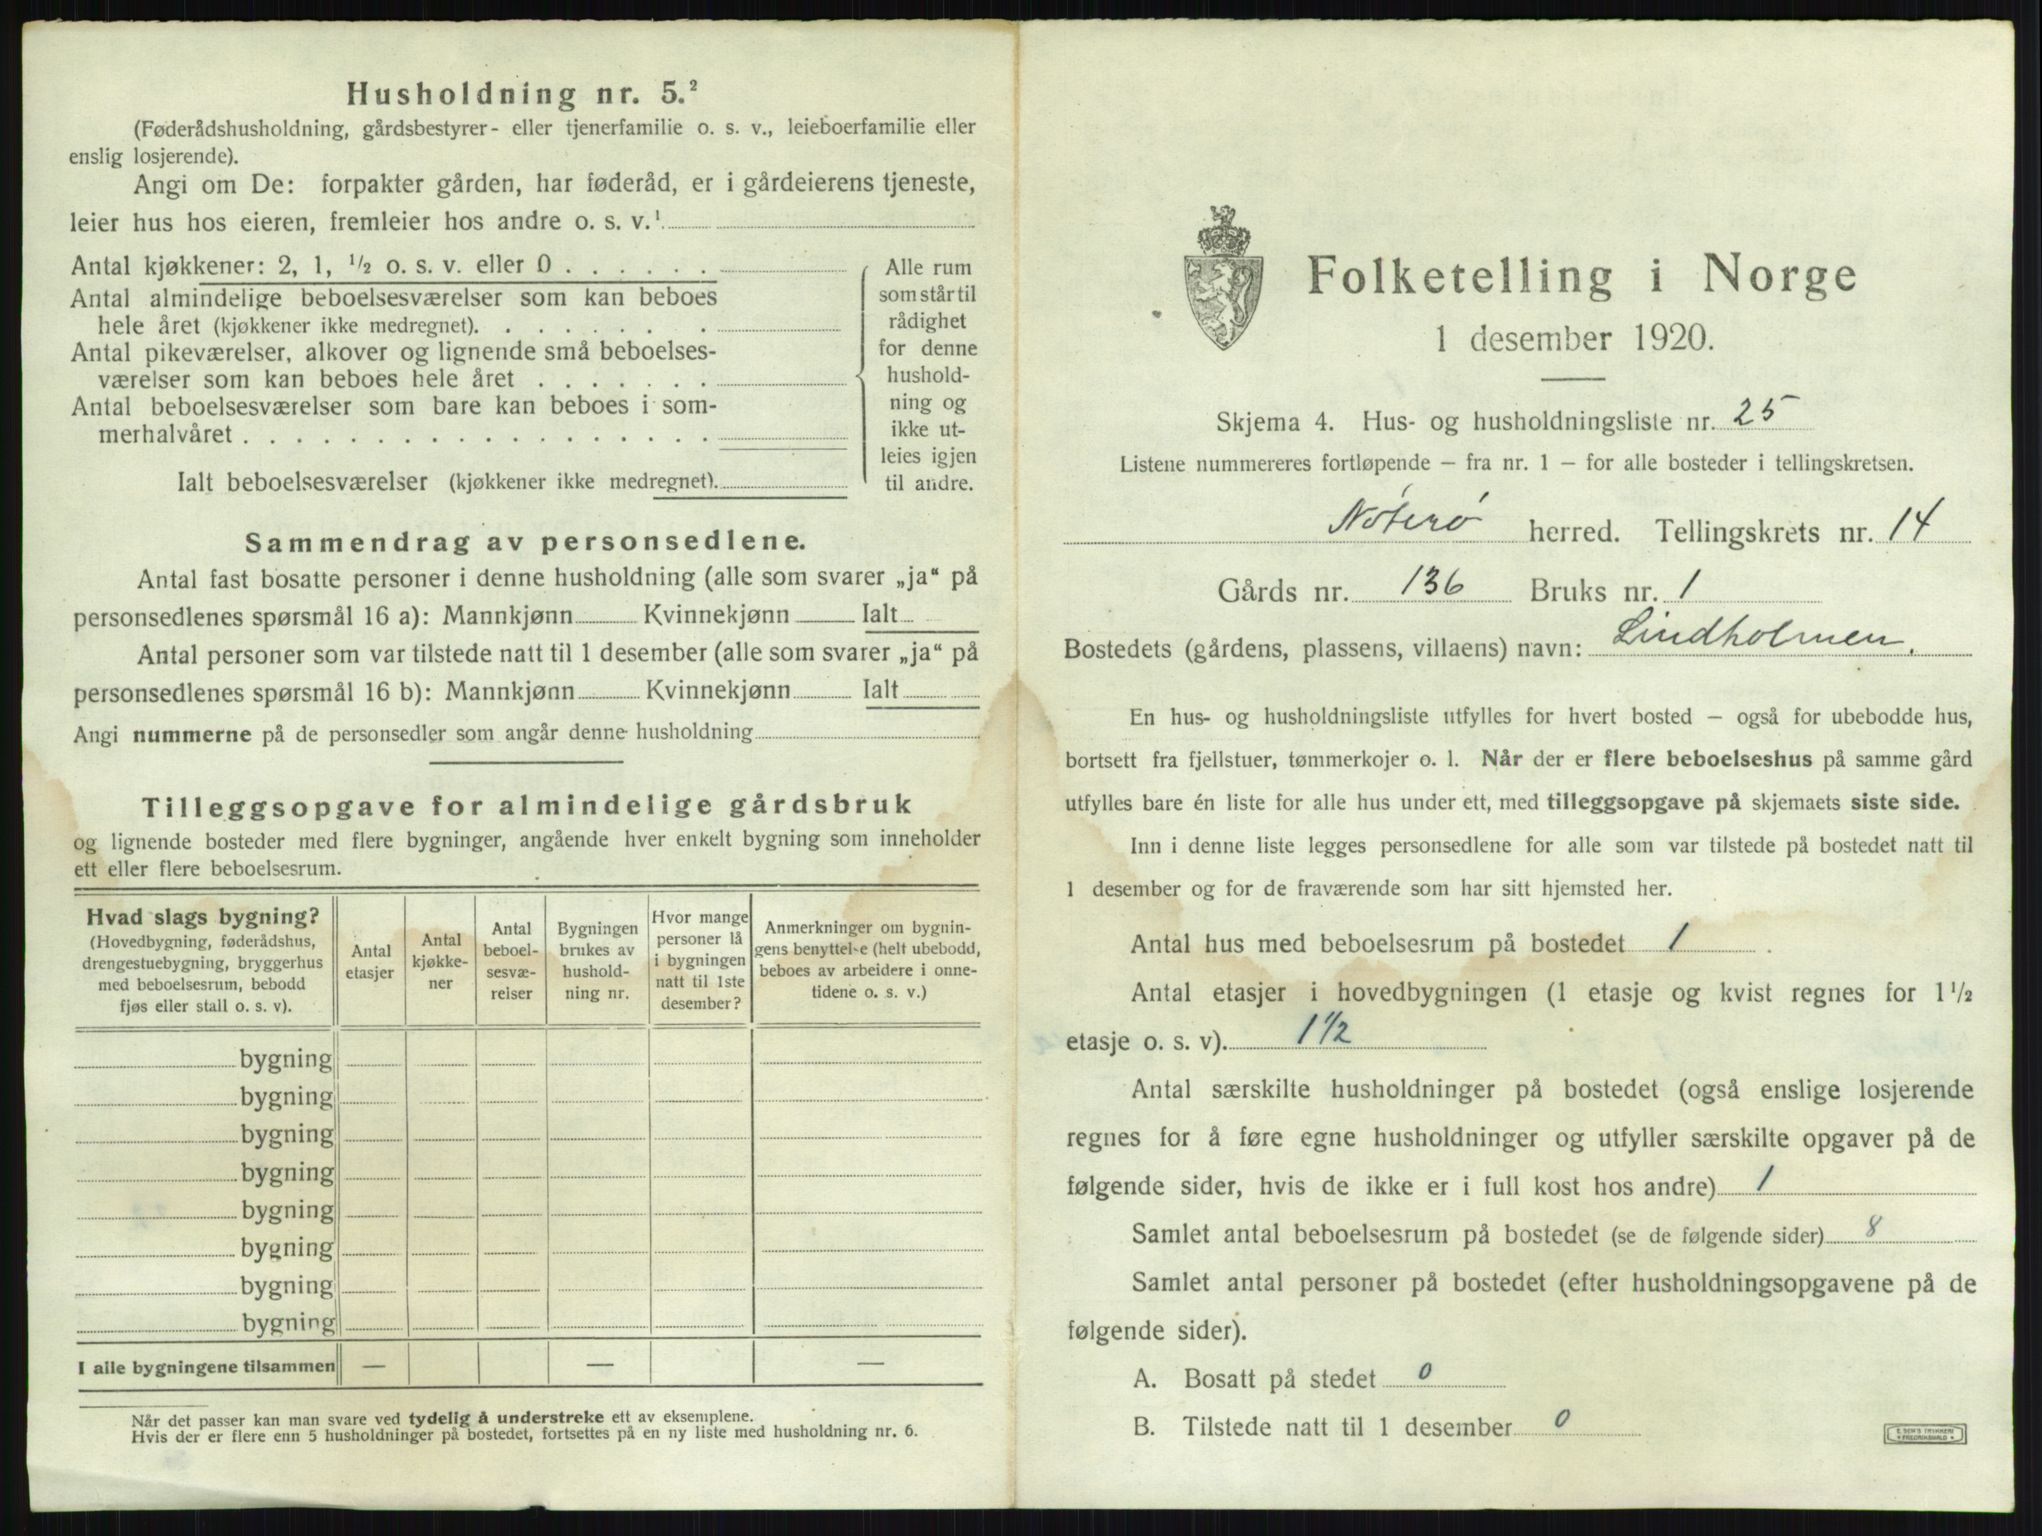 Husholdning nr. 5.²
(Føderådshusholdning, gårdsbestyrer- eller tjenerfamilie o. s. v., leieboerfamilie eller
enslig losjerende).
Angi om De: forpakter gården, har føderåd, er i gårdeierens tjeneste,
leier hus hos eieren, fremleier hos andre o. s. v.¹
Antal kjøkkener: 2, 1, ½ o. s. v. eller 0 . . . . . .
Antal almindelige beboelsesværelser som kan beboes
hele året (kjøkkener ikke medregnet). . . . . . . .
Antal pikeværelser, alkover og lignende små beboelses-
værelser som kan beboes hele året . . . . . . .
Antal beboelsesværelser som bare kan beboes i som-
merhalvåret . . . . . . . . . . . . . . . . . .
Ialt beboelsesværelser (kjøkkener ikke medregnet).
Alle rum
som står til
rådighet
for denne
hushold-
ning og
ikke ut-
leies igjen
til andre.
Sammendrag av personsedlene.
Antal fast bosatte personer i denne husholdning (alle som svarer „ja“ på
personsedlenes spørsmål 16 a): Mannkjønn Kvinnekjønn Ialt
Antal personer som var tilstede natt til 1 desember (alle som svarer „ja“ på
personsedlenes spørsmål 16 b): Mannkjønn Kvinnekjønn Ialt
Angi nummerne på de personsedler som angår denne husholdning
Tilleggsopgave for almindelige gårdsbruk
og lignende bosteder med flere bygninger, angående hver enkelt bygning som inneholder
ett eller flere beboelsesrum.
Hvad slags bygning?
(Hovedbygning, føderådshus,
drengestuebygning, bryggerhus
med beboelsesrum, bebodd
fjøs eller stall o. s. v).
Antal
etasjer
Antal
kjøkke-
ner
Antal
beboel-
sesvæ-
relser
Bygningen
brukes av
hushold-
ning nr.
Hvor mange
personer lå
i bygningen
natt til 1ste
desember?
Anmerkninger om bygnin-
gens benyttelse (helt ubebodd,
beboes av arbeidere i onne-
tidene o. s. v.)
bygning
bygning
bygning
bygning
bygning
bygning
bygning
bygning
I alle bygningene tilsammen — — —
Når det passer kan man svare ved tydelig å understreke ett av eksemplene.
Hvis der er flere enn 5 husholdninger på bostedet, fortsettes på en ny liste med husholdning nr. 6.
Folketelling i Norge
1 desember 1920.
Skjema 4. Hus- og husholdningsliste nr. 25
Listene nummereres fortløpende – fra nr. 1 – for alle bosteder i tellingskretsen.
Nøterø herred. Tellingskrets nr. 14
Gårds nr. 136 Bruks nr. 1
Bostedets (gårdens, plassens, villaens) navn: Lindholmen.
En hus- og husholdningsliste utfylles for hvert bosted – også for ubebodde hus,
bortsett fra fjellstuer, tømmerkojer o. l. Når der er flere beboelseshus på samme gård
utfylles bare én liste for alle hus under ett, med tilleggsopgave på skjemaets siste side.
Inn i denne liste legges personsedlene for alle som var tilstede på bostedet natt til
1 desember og for de fraværende som har sitt hjemsted her.
Antal hus med beboelsesrum på bostedet 1 .
Antal etasjer i hovedbygningen (1 etasje og kvist regnes for 1½
etasje o. s. v). 1½
Antal særskilte husholdninger på bostedet (også enslige losjerende
regnes for å føre egne husholdninger og utfyller særskilte opgaver på de
følgende sider, hvis de ikke er i full kost hos andre) 1
Samlet antal beboelsesrum på bostedet (se de følgende sider) 8
Samlet antal personer på bostedet (efter husholdningsopgavene på de
følgende sider).
A. Bosatt på stedet 0
B. Tilstede natt til 1 desember 0
E. SEM'S TRYKKERI
FREDRIKSHALD